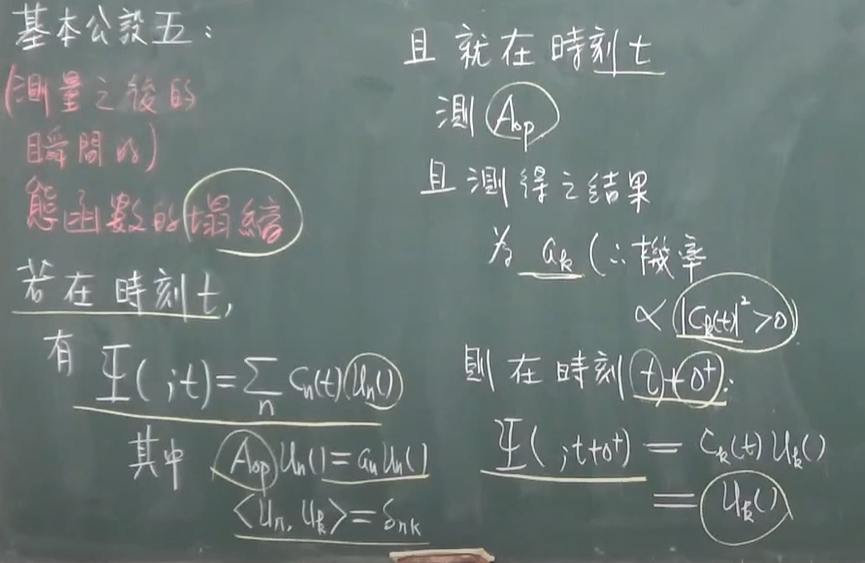 基本公設五：
(測量之後的
瞬間的)
態函數的塌縮
若在時刻t,
有 Ψ( ;t)=∑ₙ Cₙ(t)Uₙ()
其中 A_op Uₙ()=aₙUₙ()
<Uₙ, U_k>=δ_nk
且就在時刻t
測 A_op
且測得之結果
為 a_k (∴機率
∝ |C_k(t)|²>0)
則在時刻 t+0⁺:
Ψ( ;t+0⁺) = C_k(t)U_k()
= U_k()